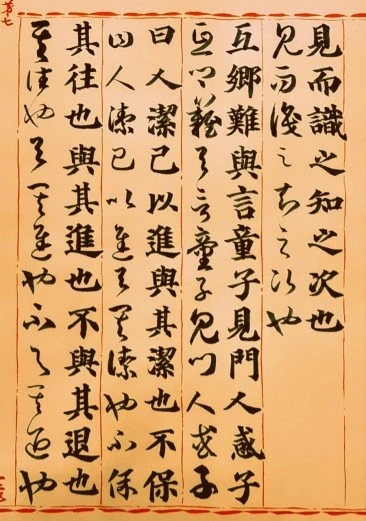 見而識之知之次也
見而識之知之次也
互鄉難與言童子見門人惑子
互鄉難與言童子見門人惑子
曰人潔己以進與其潔也不保
曰人潔己以進與其潔也不保
其往也與其進也不與其退也
其往也與其進也不與其退也
第七